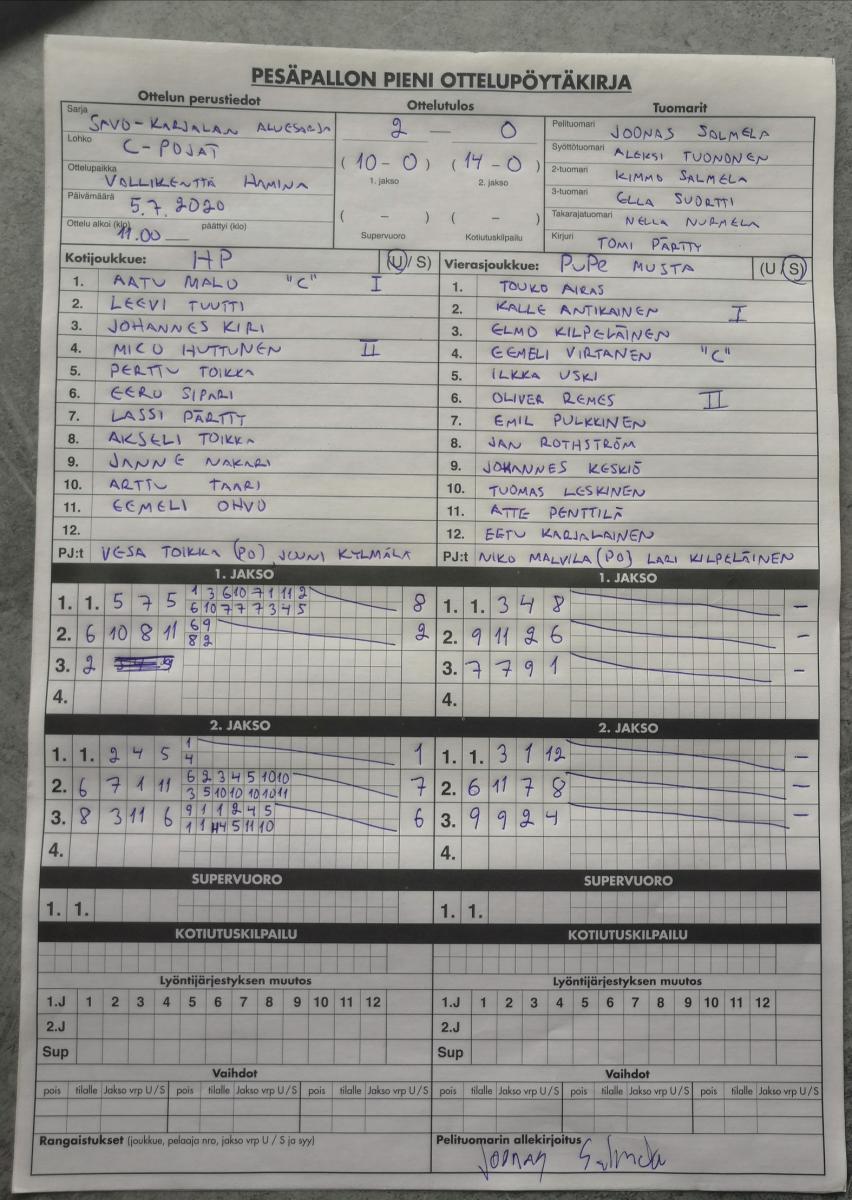 PESÄPALLON PIENI OTTELUPÖYTÄKIRJA
Ottelun perustiedot
Sarja SAVO-KARJALAN ALUESARJA
Lohko C-POJAT
Ottelupaikka VALLIKENTTÄ HAMINA
Päivämäärä 5.7.2020
Ottelu alkoi (klo) 11.00 päättyi (klo)
Ottelutulos
2 — 0
(10-0) (14-0)
1. jakso 2. jakso
( – ) ( – )
Supervuoro Kotiutuskilpailu
Tuomarit
Pelituomari JOONAS SALMELA
Syöttötuomari ALEKSI TUONONEN
2-tuomari KIMMO SALMELA
3-tuomari ELLA SUORTTI
Takarajatuomari NELLA NURMELA
Kirjuri TOMI PÄRTTY
Kotijoukkue: HP (U/S)
1. AATU MALO "C" I
2. LEEVI TUUTTI
3. JOHANNES KIRI
4. MICO HUTTUNEN II
5. PERTTU TOIKKA
6. EERO SIPARI
7. LASSI PÄRTTY
8. AKSELI TOIKKA
9. JANNE NAKARI
10. ARTTU TAARI
11. EEMELI OHVO
12.
PJ:t VESA TOIKKA (PO) JOUNI KYLMÄLÄ
Vierasjoukkue: PuPe MUSTA (U/S)
1. TOUKO AIRAS
2. KALLE ANTIKAINEN I
3. ELMO KILPELÄINEN
4. EEMELI VIRTANEN "C"
5. ILKKA USKI
6. OLIVER REMES II
7. EMIL PULKKINEN
8. JAN ROTHSTRÖM
9. JOHANNES KESKIÖ
10. TUOMAS LESKINEN
11. ATTE PENTTILÄ
12. EETU KARJALAINEN
PJ:t NIKO MALVILA (PO) LARI KILPELÄINEN
1. JAKSO
1. 1. 5 7 5 1 3 6 10 7 1 11 2 8
6 10 7 7 7 3 4 5
2. 6 10 8 11 6 9 2
8 2
3. 2
4.
1. JAKSO
1. 1. 3 4 8 –
2. 9 11 2 6 –
3. 7 7 9 1 –
4.
2. JAKSO
1. 1. 2 4 5 1 1
4
2. 6 7 1 11 6 2 3 4 5 10 10 7
3 5 10 10 10 10 11
3. 8 3 11 6 9 1 1 2 4 5 6
1 1 4 5 11 10
4.
2. JAKSO
1. 1. 3 1 12 –
2. 6 11 7 8 –
3. 9 9 2 4 –
4.
SUPERVUORO
1. 1.
SUPERVUORO
1. 1.
KOTIUTUSKILPAILU
KOTIUTUSKILPAILU
Lyöntijärjestyksen muutos
1.J 1 2 3 4 5 6 7 8 9 10 11 12
2.J
Sup
Lyöntijärjestyksen muutos
1.J 1 2 3 4 5 6 7 8 9 10 11 12
2.J
Sup
Vaihdot
pois tilalle Jakso vrp U/S pois tilalle Jakso vrp U/S pois tilalle Jakso vrp U/S
Vaihdot
pois tilalle Jakso vrp U/S pois tilalle Jakso vrp U/S pois tilalle Jakso vrp U/S
Rangaistukset (joukkue, pelaaja nro, jakso vrp U / S ja syy)
Pelituomarin allekirjoitus
Joonas Salmela